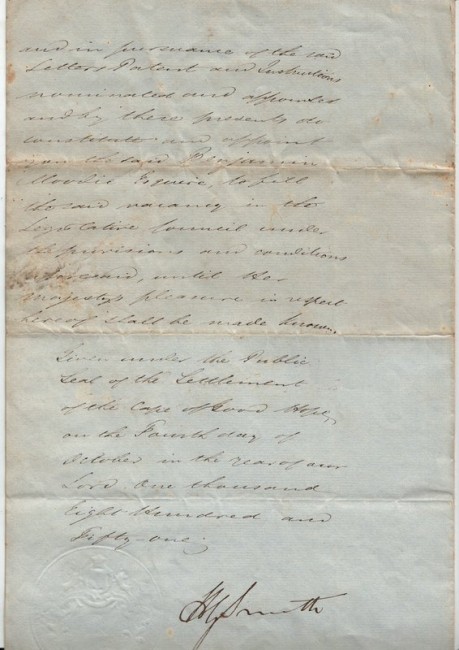 and in pursuance of the said
Letters Patent and Instructions
nominated and appointed
and by these presents do
constitute and appoint
you the said Benjamin
Moodie Esquire, to fill
the said vacancy in the
Legislative Council under
the provisions and conditions
aforesaid, until Her
Majesty's pleasure in respect
hereof shall be made known.
Given under the Public
Seal of the Settlement
of the Cape of Good Hope,
on the Fourth day of
October in the year of our
Lord One thousand
Eight Hundred and
Fifty-one.
HGSmith